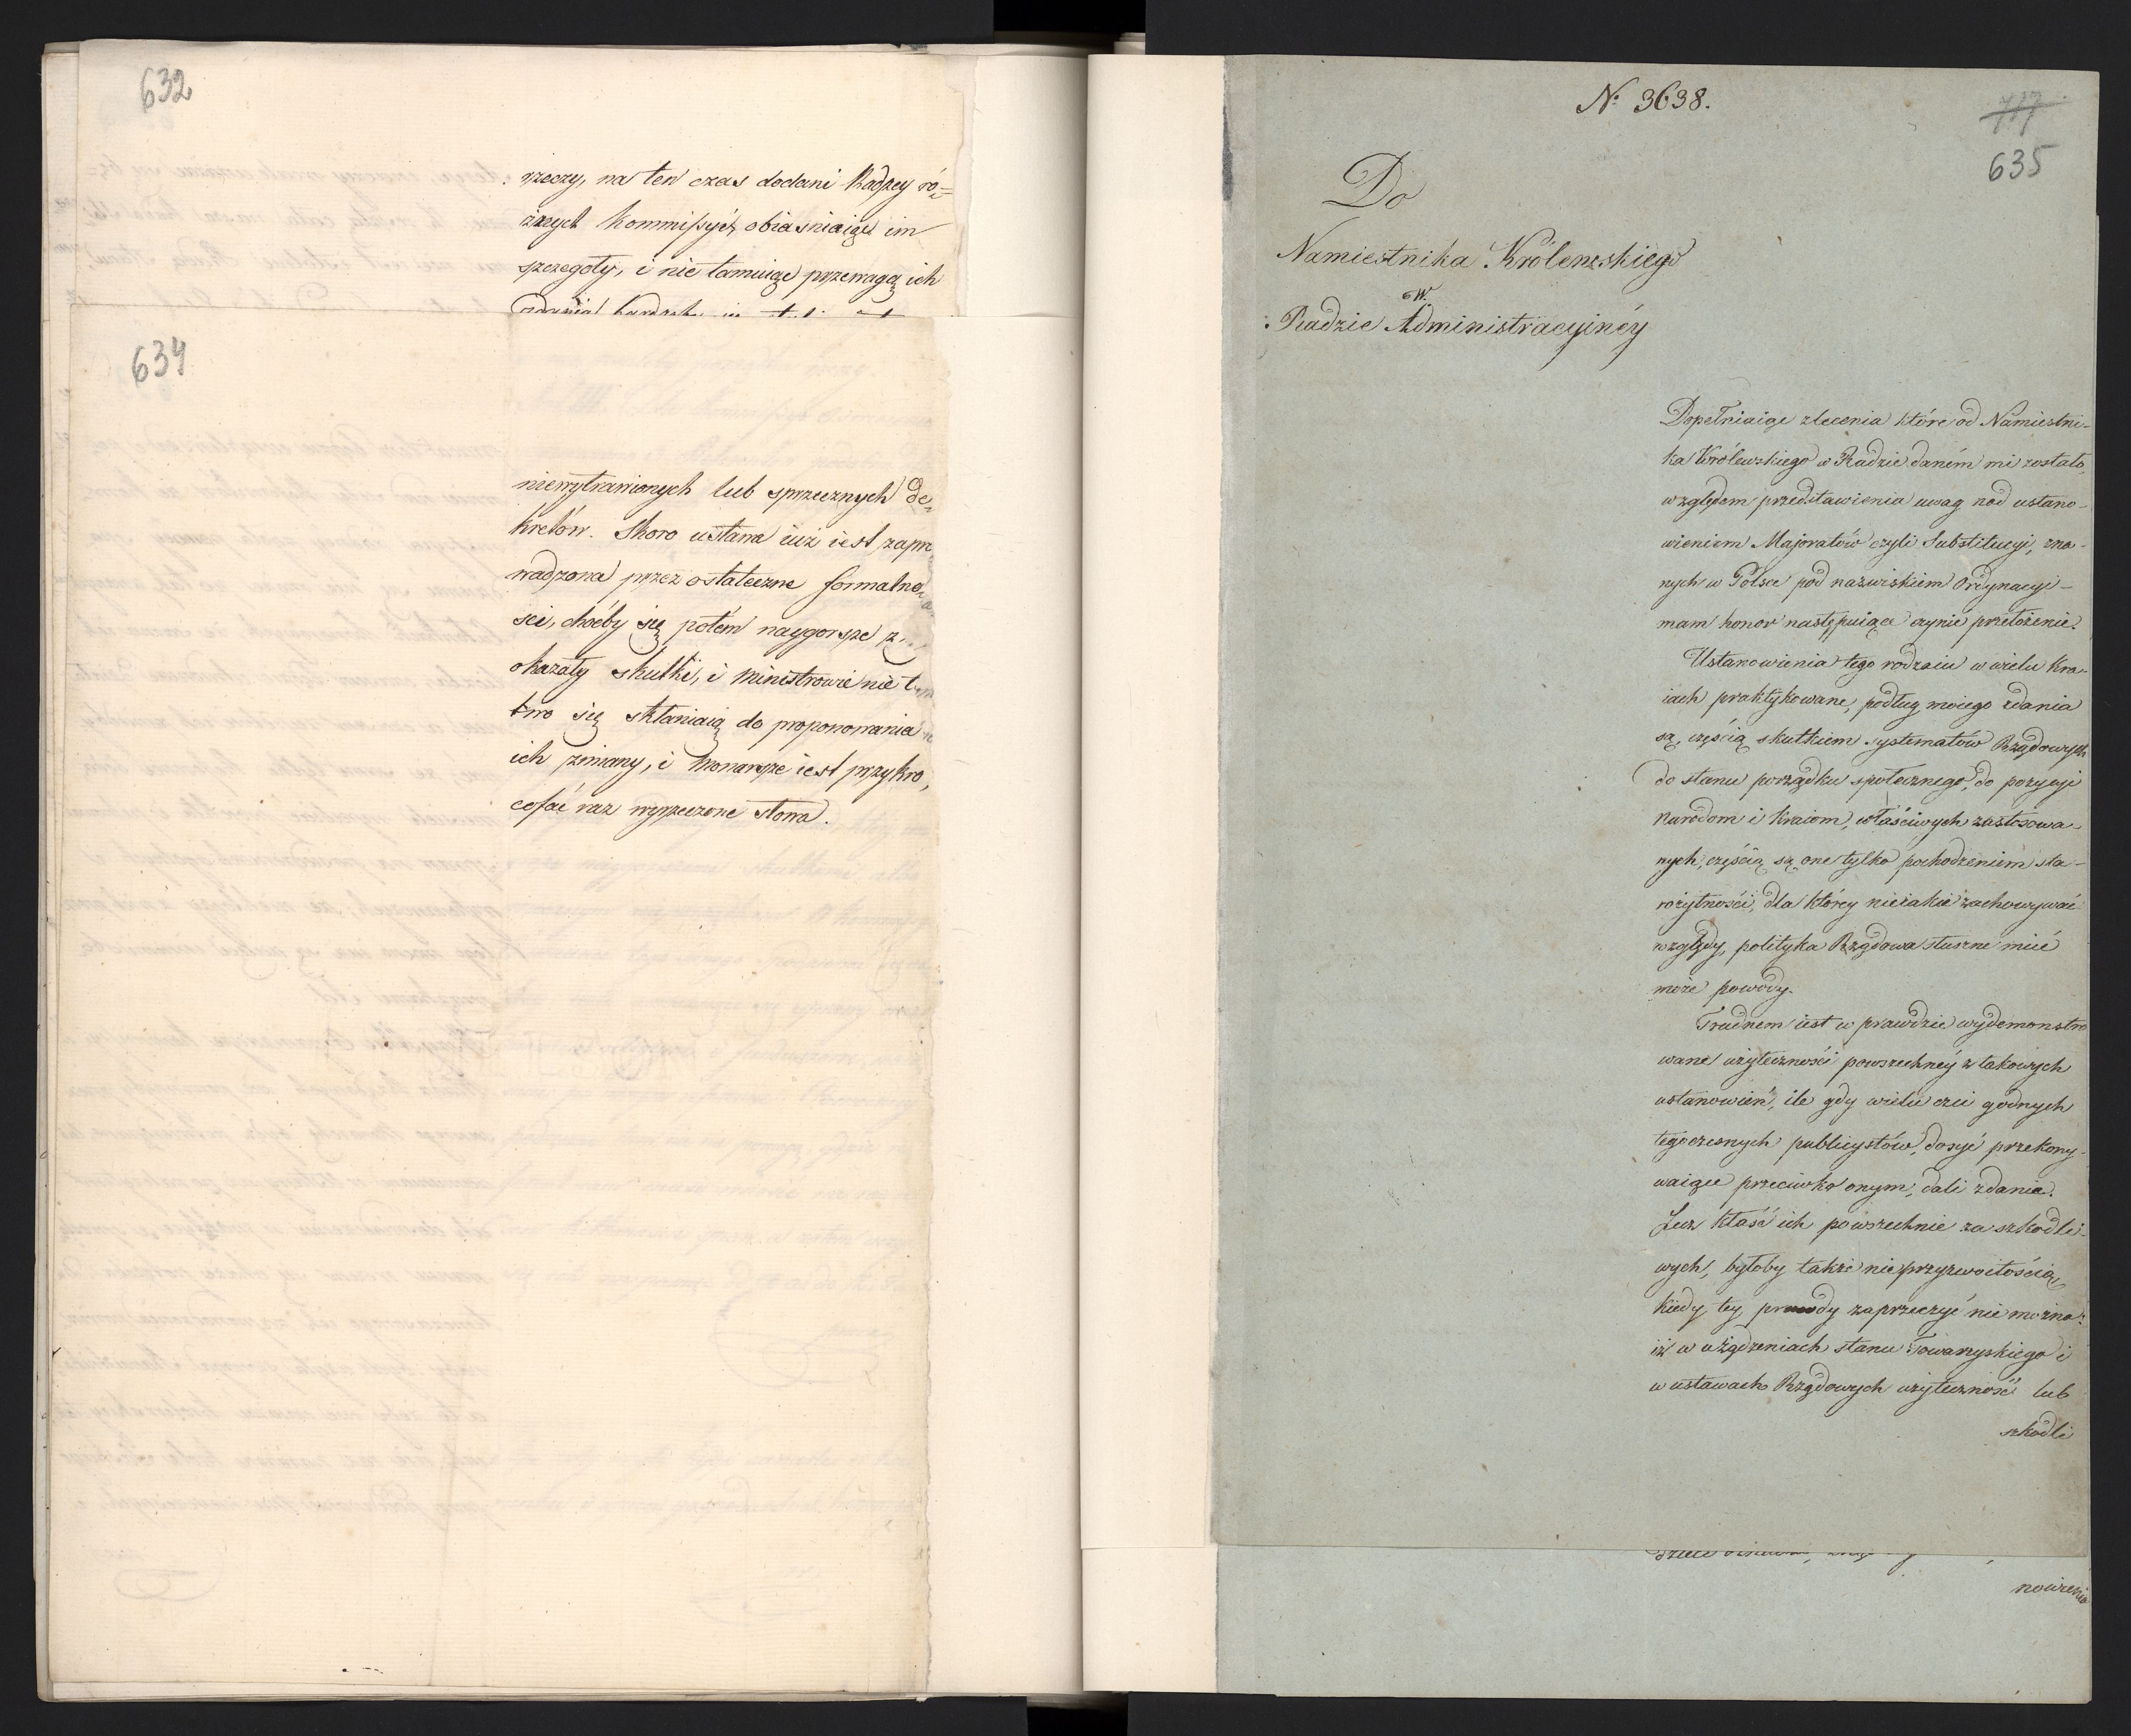 632
rzeczy, na ten czas dodani Radzcy ró=
żnych Kommissyi, obiaśniaiąc im
szczegóły, i nie tamuiąc przewagą ich
zdania
634
niewytrawionych lub sprzecznych de-
kretów. Skoro ustawa iuż iest zapro
wadzona przez ostateczne formalno-
sci, choćby się potém naygorsze z
okazały skutki, i Ministrowie nie ła
two się skłaniaią do proponowania
ich zmiany, i Monarsze iest przykro,
cofać raz wyrzeczone słowa.
N: 3638.
717
635
Do
Namiestnika Królewskiego
w
Radzie Administracyinéy
Dopełniaiąc zlecenia które od Namiestni-
ka Królewskiego w Radzie daném mi zostało,
względem przedstawienia uwag nad ustano-
wieniem Majoratów czyli Substitucyi, zna-
nych w Polsce pod nazwiskiem Ordynacyi-
mam honor następuiące czynić przełożenie.
Ustanowienia tego rodzaiu w wielu Kra-
iach praktykowane, podług moiego zdania
są, częścią skutkiem systematów Rządowych
do stanu porządku społecznego, do pozycyi
Narodom i Kraiom, właściwych zastosowa-
nych, częścią są one tylko pochodzeniem sta-
rożytności, dla którey nieiakie zachowywać
względy, polityka Rządowa słuszne mieć
może powody.
Trudnem iest w prawdzie wydemonstro
wanie użyteczności powszechnéy z takowych
ustanowień, ile gdy wielu czci godnych
tegoczesnych publicystów, dosyć przekony-
waiące przeciwko onym, dali zdanie.
Lecz kłaść ich powszechnie za szkodli-
wych, byłoby także nieprzyzwoitością,
kiedy tey prawdy zaprzeczyć nie można:
iż w urządzeniach stanu Towarzyskiego i
w ustawach Rządowych użyteczność lub
szkodli
nowienia